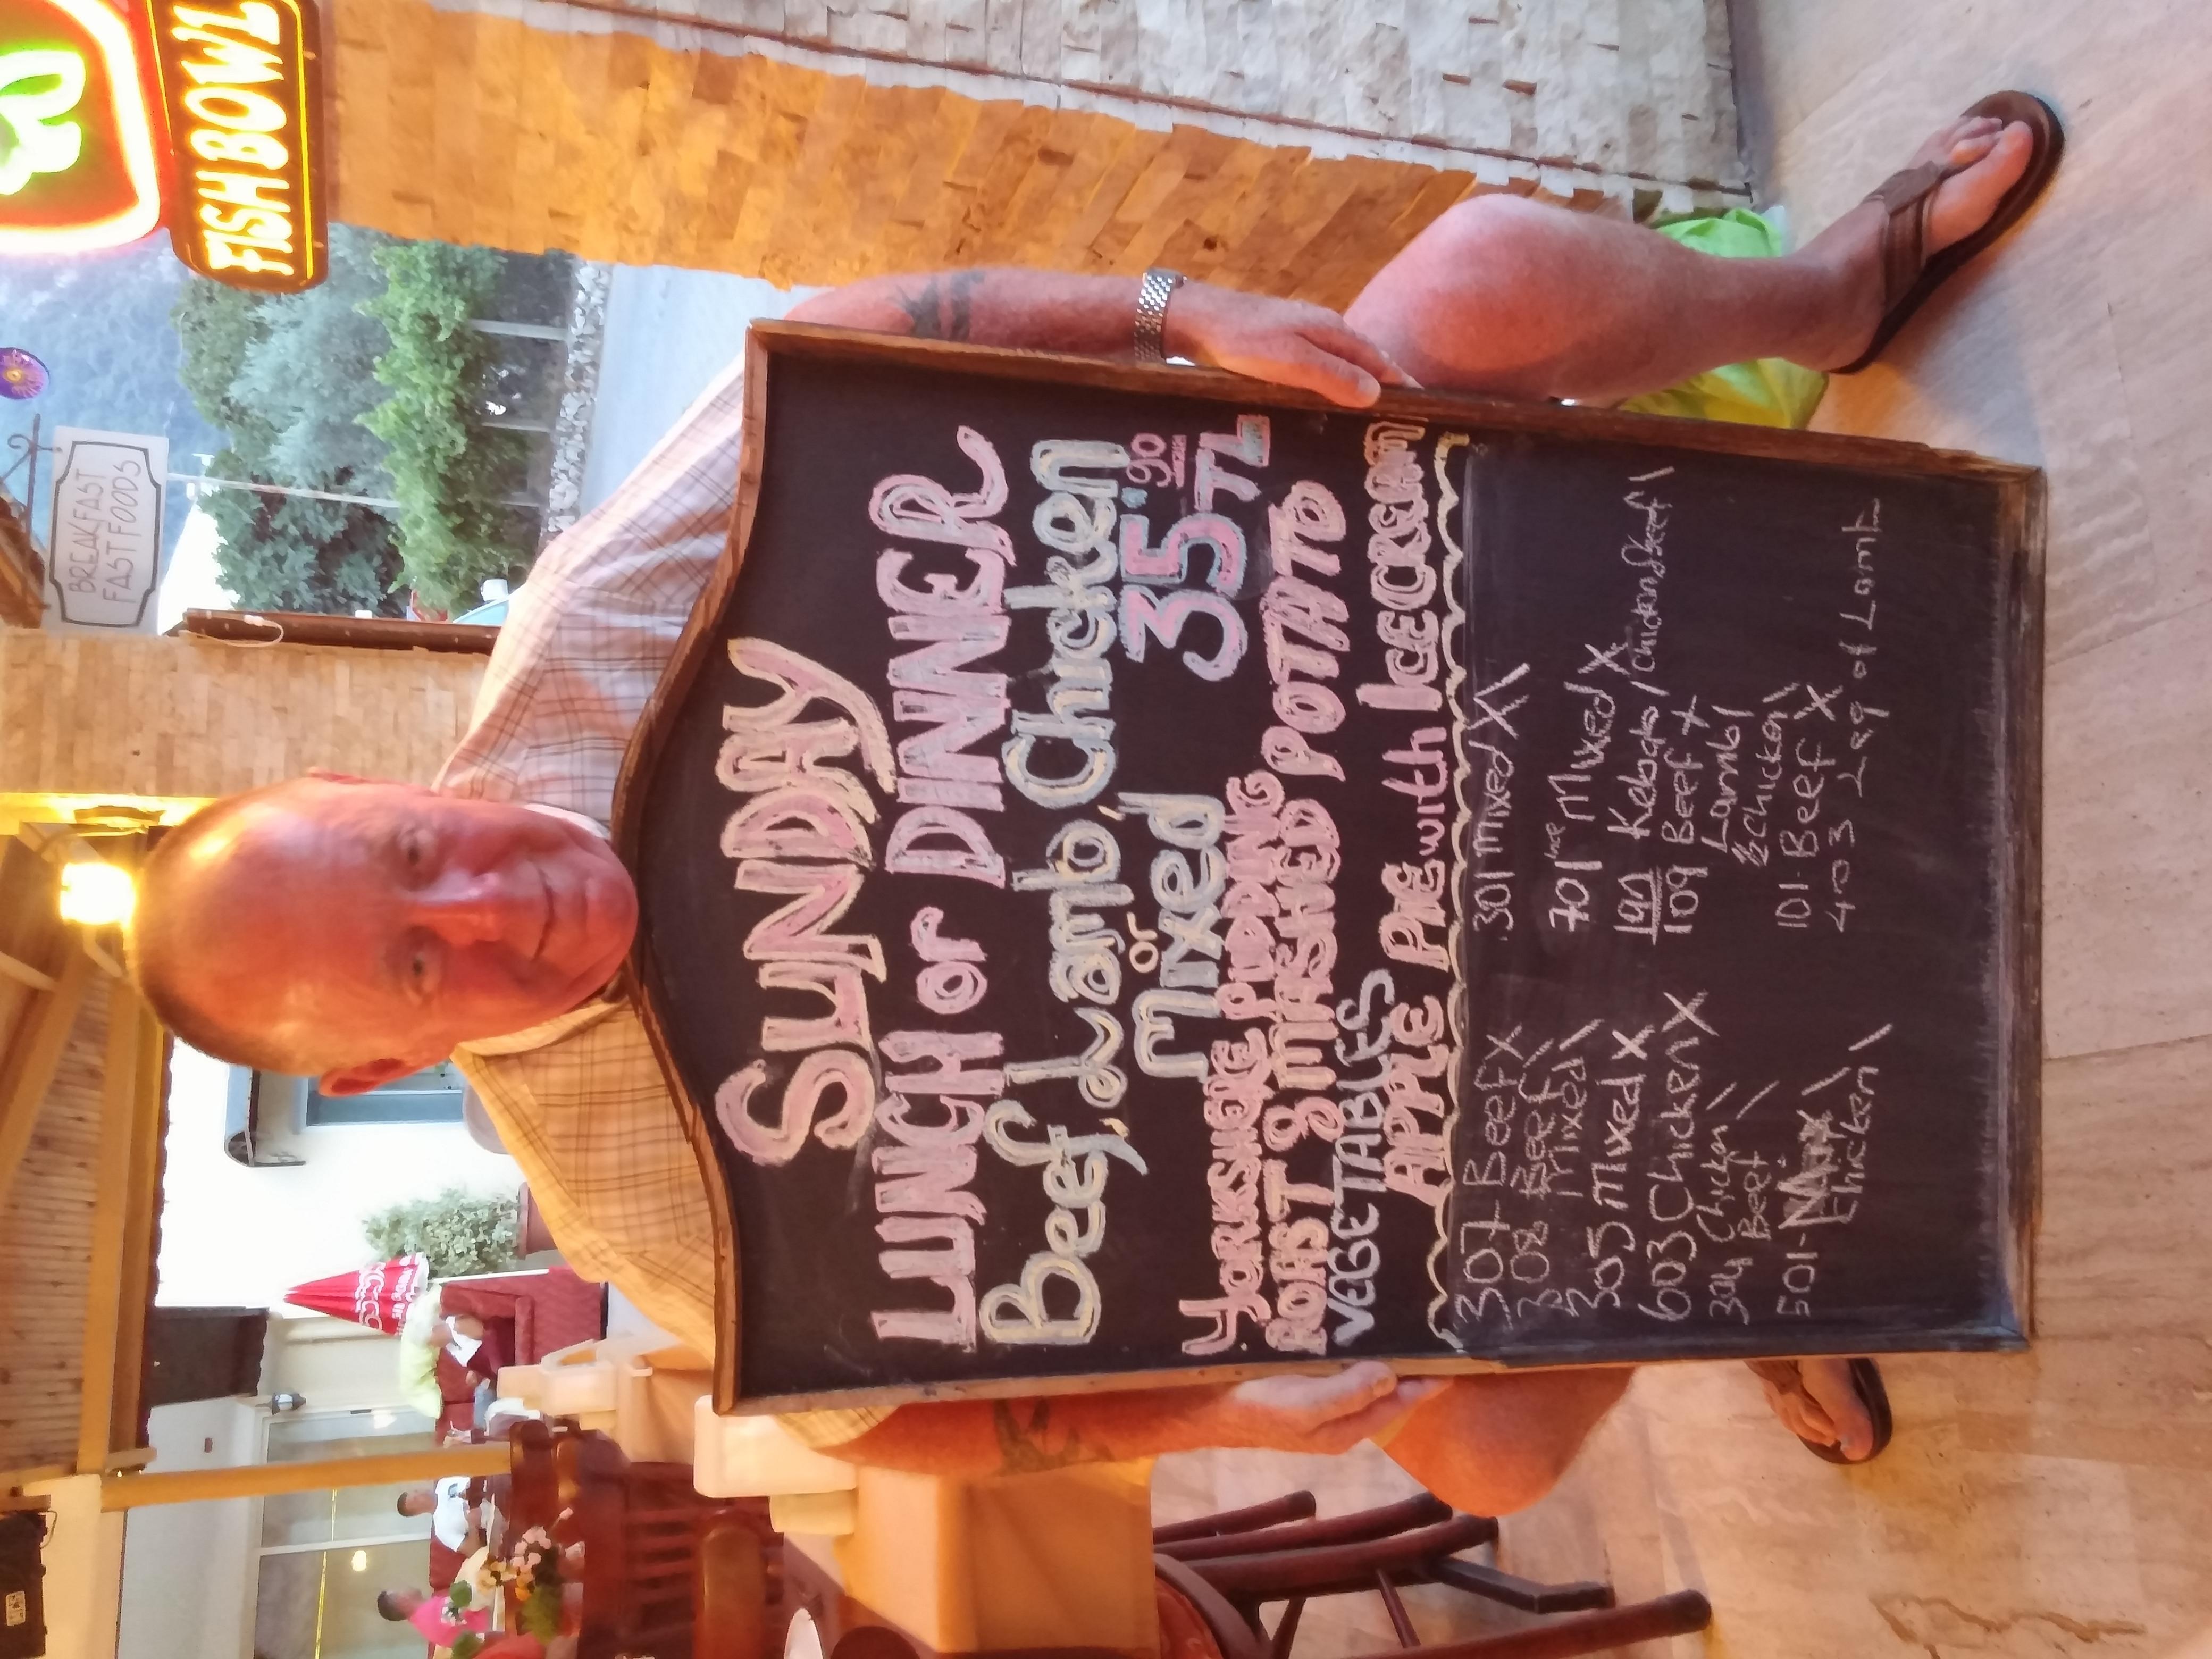 FISH BOWL
BREAKFAST
FAST FOODS
SUNDAY
LUNCH or DINNER
Beef, Lamb, Chicken
or
Mixed
35.90
TL
YORKSHIRE PUDDING
ROAST & MASHED POTATO
VEGETABLES
APPLE PIE with ICE CREAM
307 Beef X
308 Beef \
Mixed \
305 Mixed X
603 Chicken X
304 Chicken \
Beef \
501-
Chicken \
301 Mixed X \
701 Mixed X
109 Beef X
Lamb /
& Chicken \
101-Beef X
403 Leg of Lamb